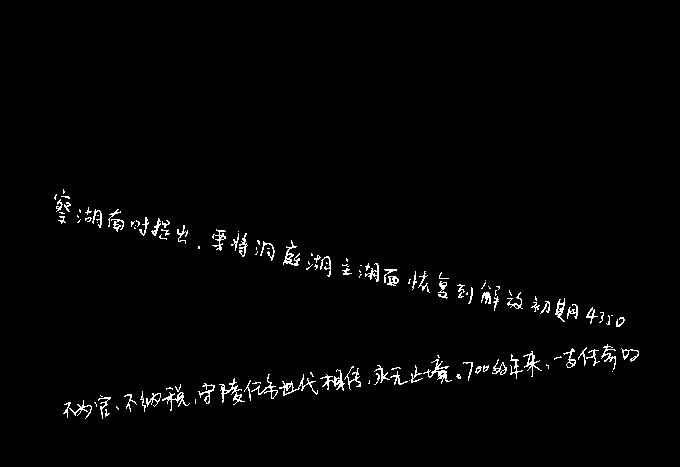 察湖南时提出，要将洞庭湖主湖面恢复到解放初期4350
不为官、不纳税，守陵任务世代相传，永无止境。700多年来，一支住着的